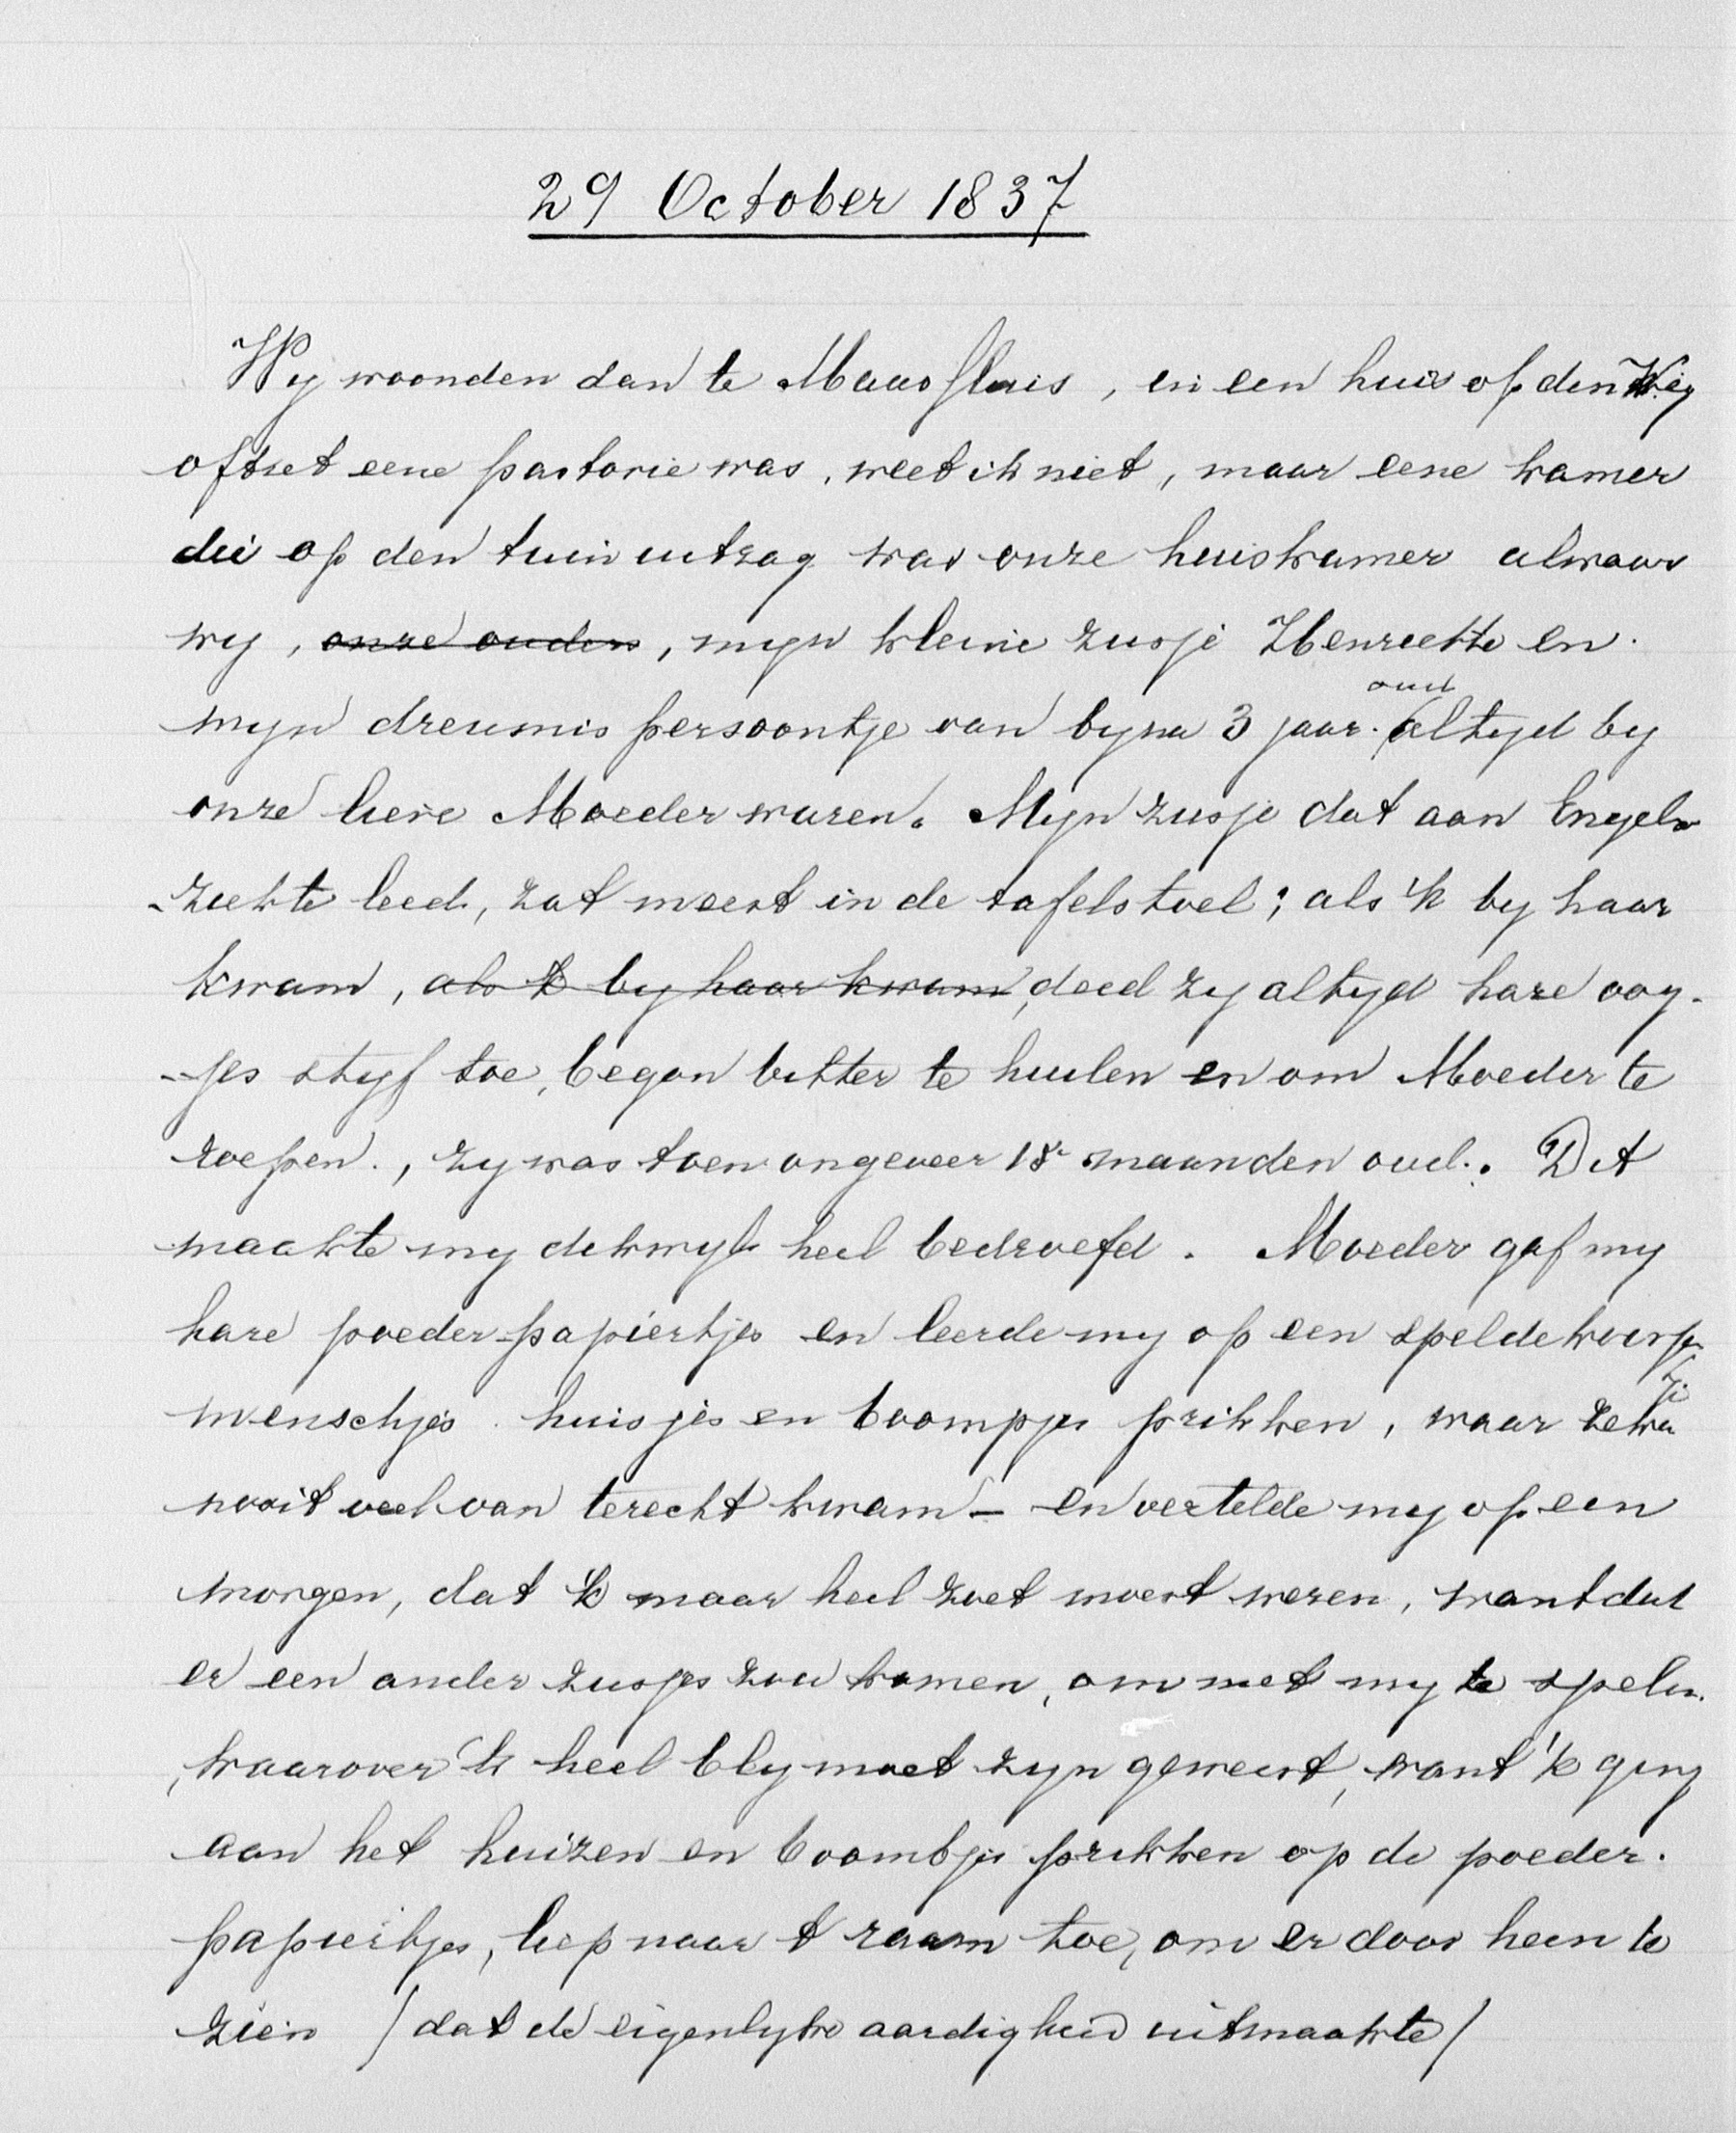 29 October 1837
Wy woonden dan te Maassluis, in een huis op den Weg
of het eene pastorie was, weet ik niet, maar eene kamer
die op den tuin uitzag was onze huiskamer alwaar
wy, onze ouders, myn kleine zusje Henriette en
myn dreumis persoontje van byna 3 jaar oud altyd by
onze lieve Moeder waren. Myn zusje dat aan Engels
-ziekte leed, zat meest in de tafelstoel; als 'k by haar
kwam, als 'k by haar kwam, deed zy altyd hare oog-
-jes styf toe, begon bitter te huilen en om Moeder te
roepen., zy was toen ongeveer 18 maanden oud. Dit
maakte my dikwyls heel bedroefd. Moeder gaf my
hare poeder-papiertjes en leerde my op een speldekussen
menschjes huisjes en boompjes prikken, waar
nooit veel van terecht kwam - en vertelde my op een
morgen, dat 'k maar heel zoet moest wezen, want dat
er een ander zusjes zou komen, om met my te spelen.
waarover 'k heel bly moet zyn geweest, want 'k ging
aan het huizen en boombjes prikken op de poeder.
papiertjes, liep naar 't raam toe, om er door heen te
zien (dat de eigenlyke aardigheid uitmaakte)